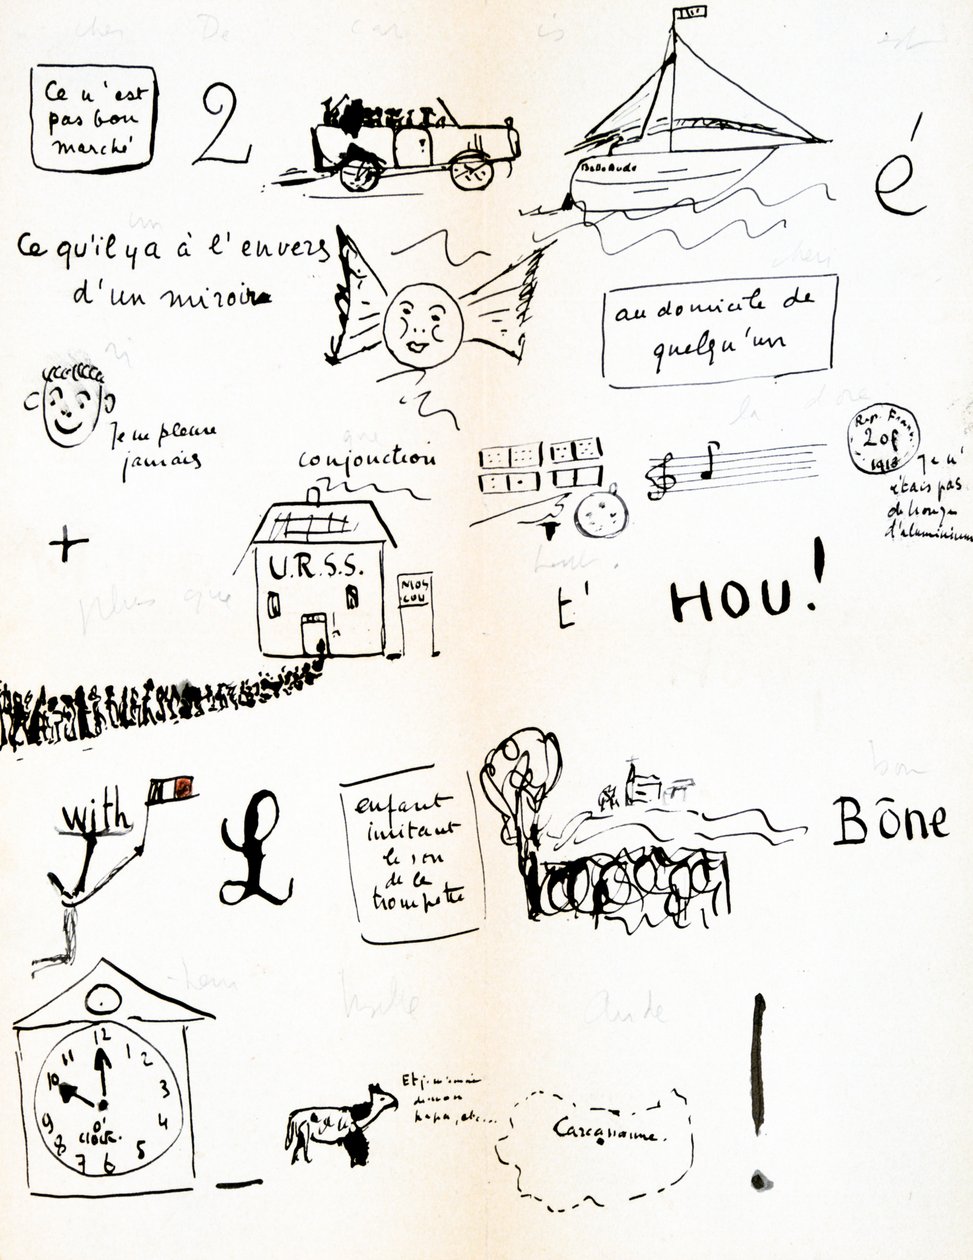 cher De car is est
Ce n'est
pas bon
marché
2
é
un
Ce qu'il y a à l'envers
d'un miroir
chéri
au domicile de
quelqu'un
ri
Je ne pleure
jamais
que
conjonction
la dore
Rep. Franc
20f
1913
Je n'
étais pas
de bronze
d'aluminium
+
U.R.S.S.
MOS
COU
plus que
t'
HOU!
with
£
enfant
imitant
le son
de la
trompette
bon
Bône
12
1
2
3
4
5
6
7
8
9
10
11
O'
clock.
_
Aude
Carcassonne.
!